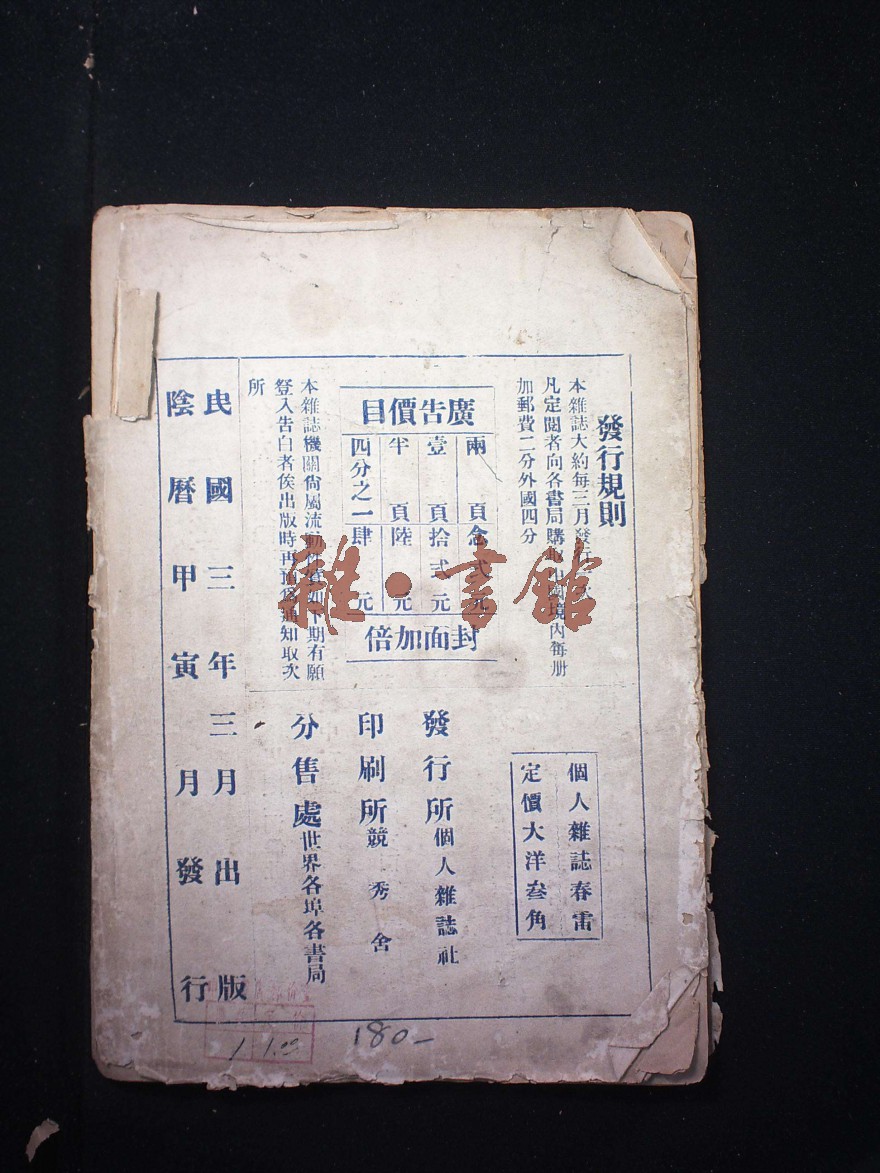 發行規則
本雜誌大約每三月發行一次
凡定閱者向各書局購取中國境內每册
加郵費二分外國四分
廣告價目
兩頁念弍元
壹頁拾弍元
半頁陸元
四分之一肆元
封面加倍
本雜誌機關尙屬流動性質如下期有願
登入告白者俟出版時再預爲通知取次
所
個人雜誌春雷
定價大洋叁角
發行所個人雜誌社
印刷所競秀舍
分售處世界各埠各書局
民國三年三月出版
陰曆甲寅月發行
雜·書館
1 1.00
180-